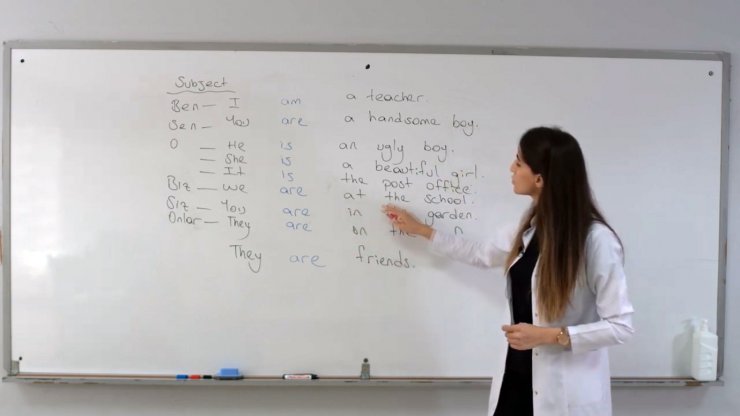 Subject
Ben — I am a teacher.
Sen — You are a handsome boy.
O — He is an ugly boy.
— She is a beautiful girl.
— It is the post office.
Biz — We are at the school.
Siz — You are in garden.
Onlar — They are on the n
They are friends.